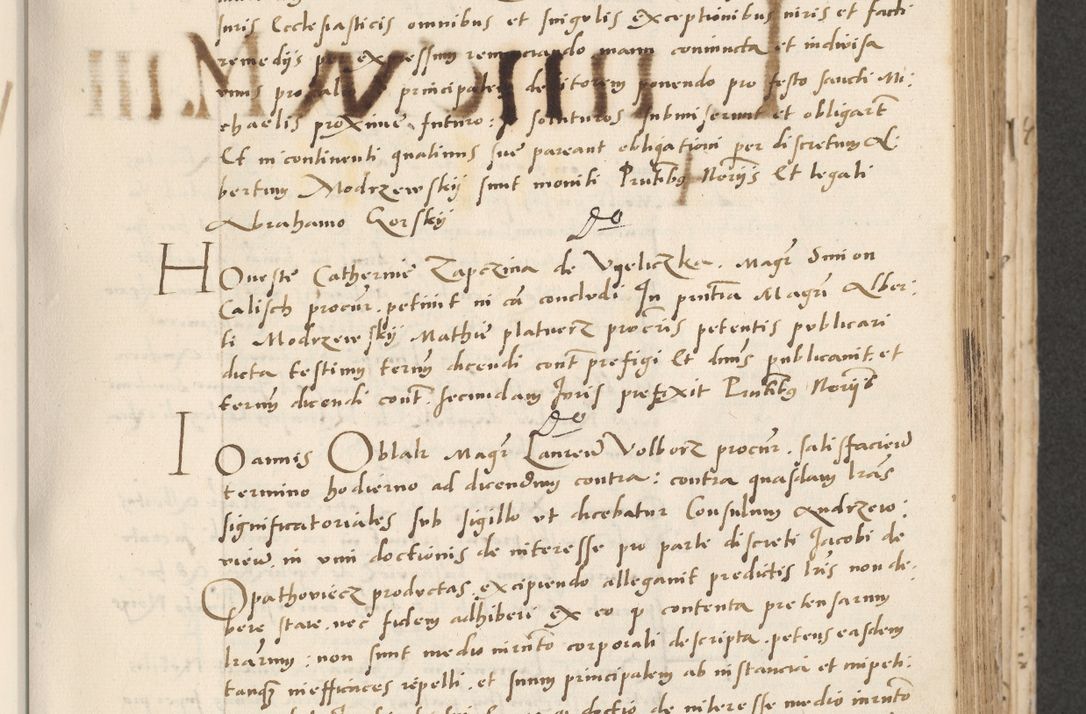 iuris Ecclesiasticis omnibus et singulis exceptionibus iuris et facti
remedijs per expressum renunciando manu coniuncta et indivisa
unus pro alio principalem debitorem ponendo pro festo sancti Mi:
chaelis proxime futuro: soluturos submiserunt et obligarunt
Et incontinenti quatinus sue pareant obligationi per discretum Al
bertum Modrzewskij sunt moniti Pntibus Norijs Et legali
Abrahamo Gorskij
Do
HOneste Catherine Zapczina de Vyeliczka. Magr Simon
Calisch procur. petivit in ca concludi In pntia Magri Alber:
ti Modrzewskij Mathie platnerz procris petentis publicari
dicta testium termn dicendi cont prefigi Et dnus publicavit et
termn dicendi cont. secundam Juris prefixit Pntibus Norijs
Do
IOannis Oblak Magr Laurenti Volborz procur. satisfaciens
termino hodierno ad dicendum contra: contra quasdam lras
significatoriales sub sigillo ut dicebatur Consulum Andrzeio:
vien. in vim doctionis de interesse pro parte discreti Jacobi de
Opathoviecz productas. excipiendo allegavit predictis lris non de:
bere stare. nec fidem adhiberi ex eo q contenta pretensarum
lrarum: non sunt medio iurnto corporali descripta. petens easdem
tanq inefficaces repelli. et suum principalem ab instancia et impeti:
doctio de interesse medio iurnto